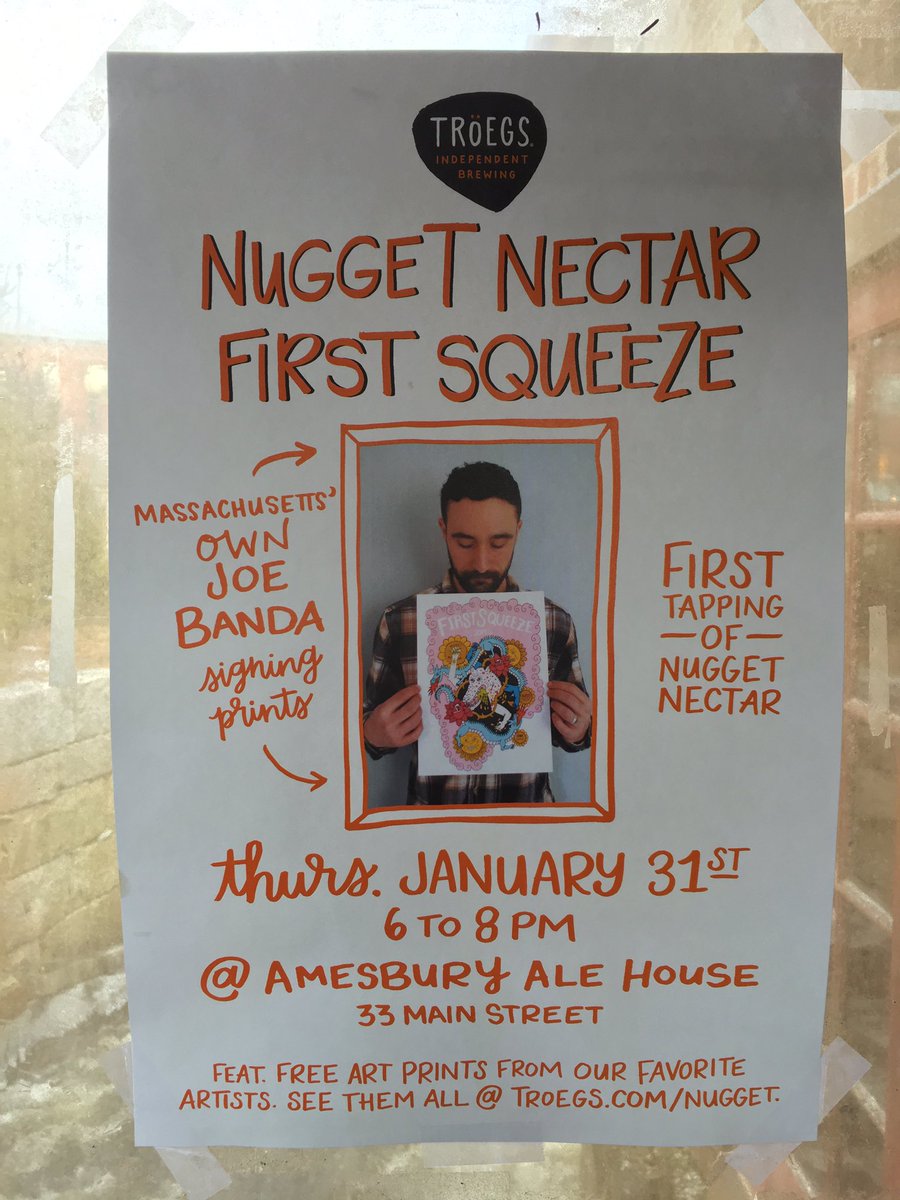 TRöEGS®
INDEPENDENT
BREWING
NUGGET NECTAR
FIRST SQUEEZE
MASSACHUSETTS'
OWN
JOE
BANDA
signing
prints
FIRST SQUEEZE
FIRST
TAPPING
— OF —
NUGGET
NECTAR
thurs. JANUARY 31ST
6 TO 8 PM
@ AMESBURY ALE HOUSE
33 MAIN STREET
FEAT. FREE ART PRINTS FROM OUR FAVORITE
ARTISTS. SEE THEM ALL @ TROEGS.COM/NUGGET.